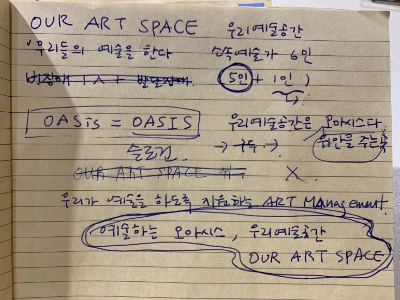 OUR ART SPACE 우리예술공간
우리들의 예술을 한다 소속예술가 6인
비장애 1人 발달장애 5인 + 1인 )
OASis = OASIS 우리예술공간은 오아시스다.
슬로건 → → 위안을 주는
OUR ART SPACE 는 X
우리가 예술을 하도록 지원하는 ART Management.
예술하는 오아시스, 우리예술공간
OUR ART SPACE